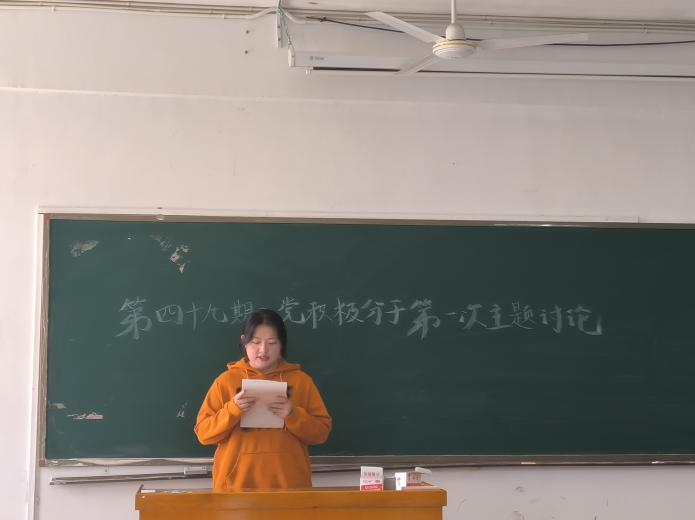 第四十九期 党积极分子第一次主题讨论